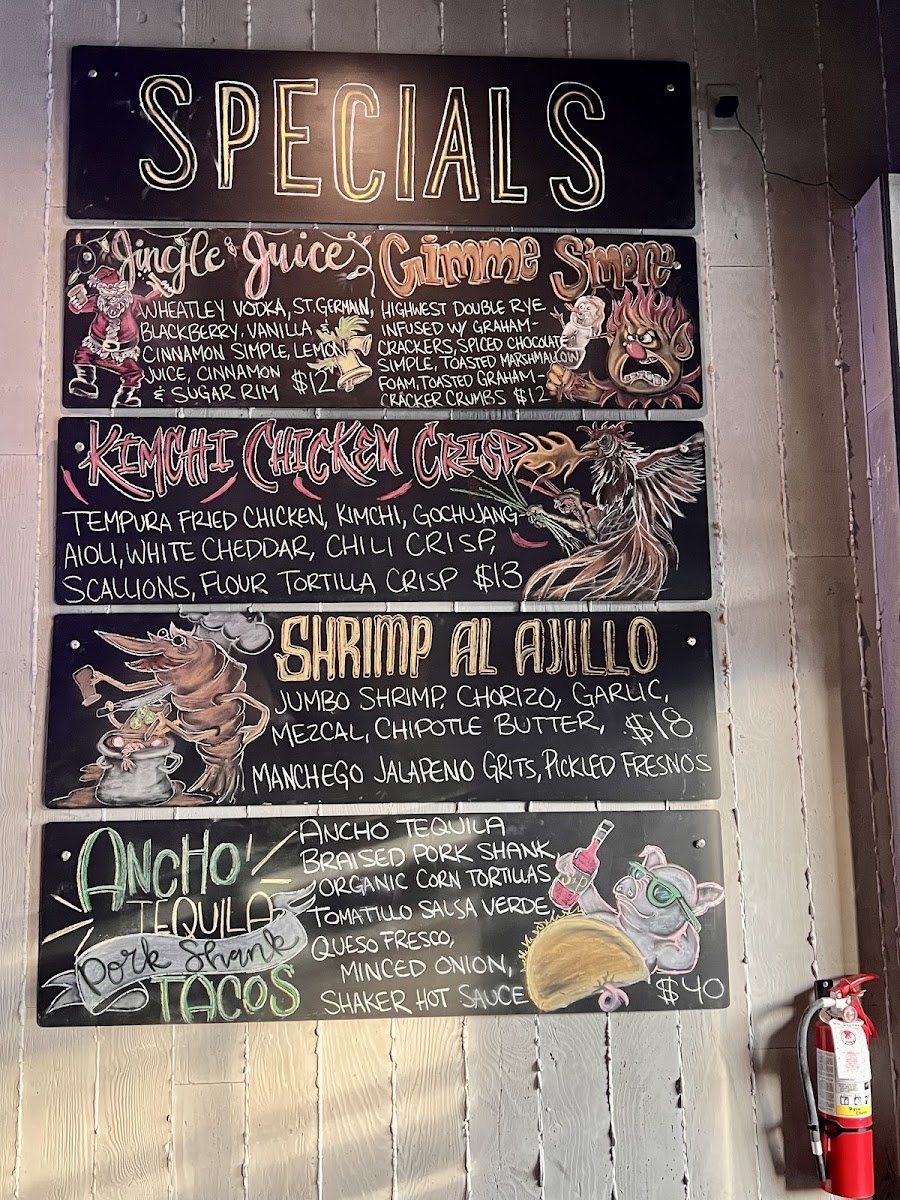 SPECIALS
Jingle Juice
WHEATLEY VODKA, ST. GERMAIN,
BLACKBERRY, VANILLA, &
CINNAMON SIMPLE, LEMON
JUICE, CINNAMON
& SUGAR RIM $12
Gimme S'more
HIGHWEST DOUBLE RYE
INFUSED W/ GRAHAM-
CRACKERS, SPICED CHOCOLATE
SIMPLE, TOASTED MARSHMALLOW
FOAM, TOASTED GRAHAM-
CRACKER CRUMBS $12
KIMCHI CHICKEN CRISP
TEMPURA FRIED CHICKEN, KIMCHI, GOCHUJANG-
AIOLI, WHITE CHEDDAR, CHILI CRISP,
SCALLIONS, FLOUR TORTILLA CRISP $13
SHRIMP AL AJILLO
JUMBO SHRIMP, CHORIZO, GARLIC,
MEZCAL, CHIPOTLE BUTTER, $18
MANCHEGO JALAPENO GRITS, PICKLED FRESNOS
ANCHO
TEQUILA
Pork Shank
TACOS
ANCHO TEQUILA
BRAISED PORK SHANK,
ORGANIC CORN TORTILLAS
TOMATILLO SALSA VERDE,
QUESO FRESCO,
MINCED ONION,
SHAKER HOT SAUCE
$40